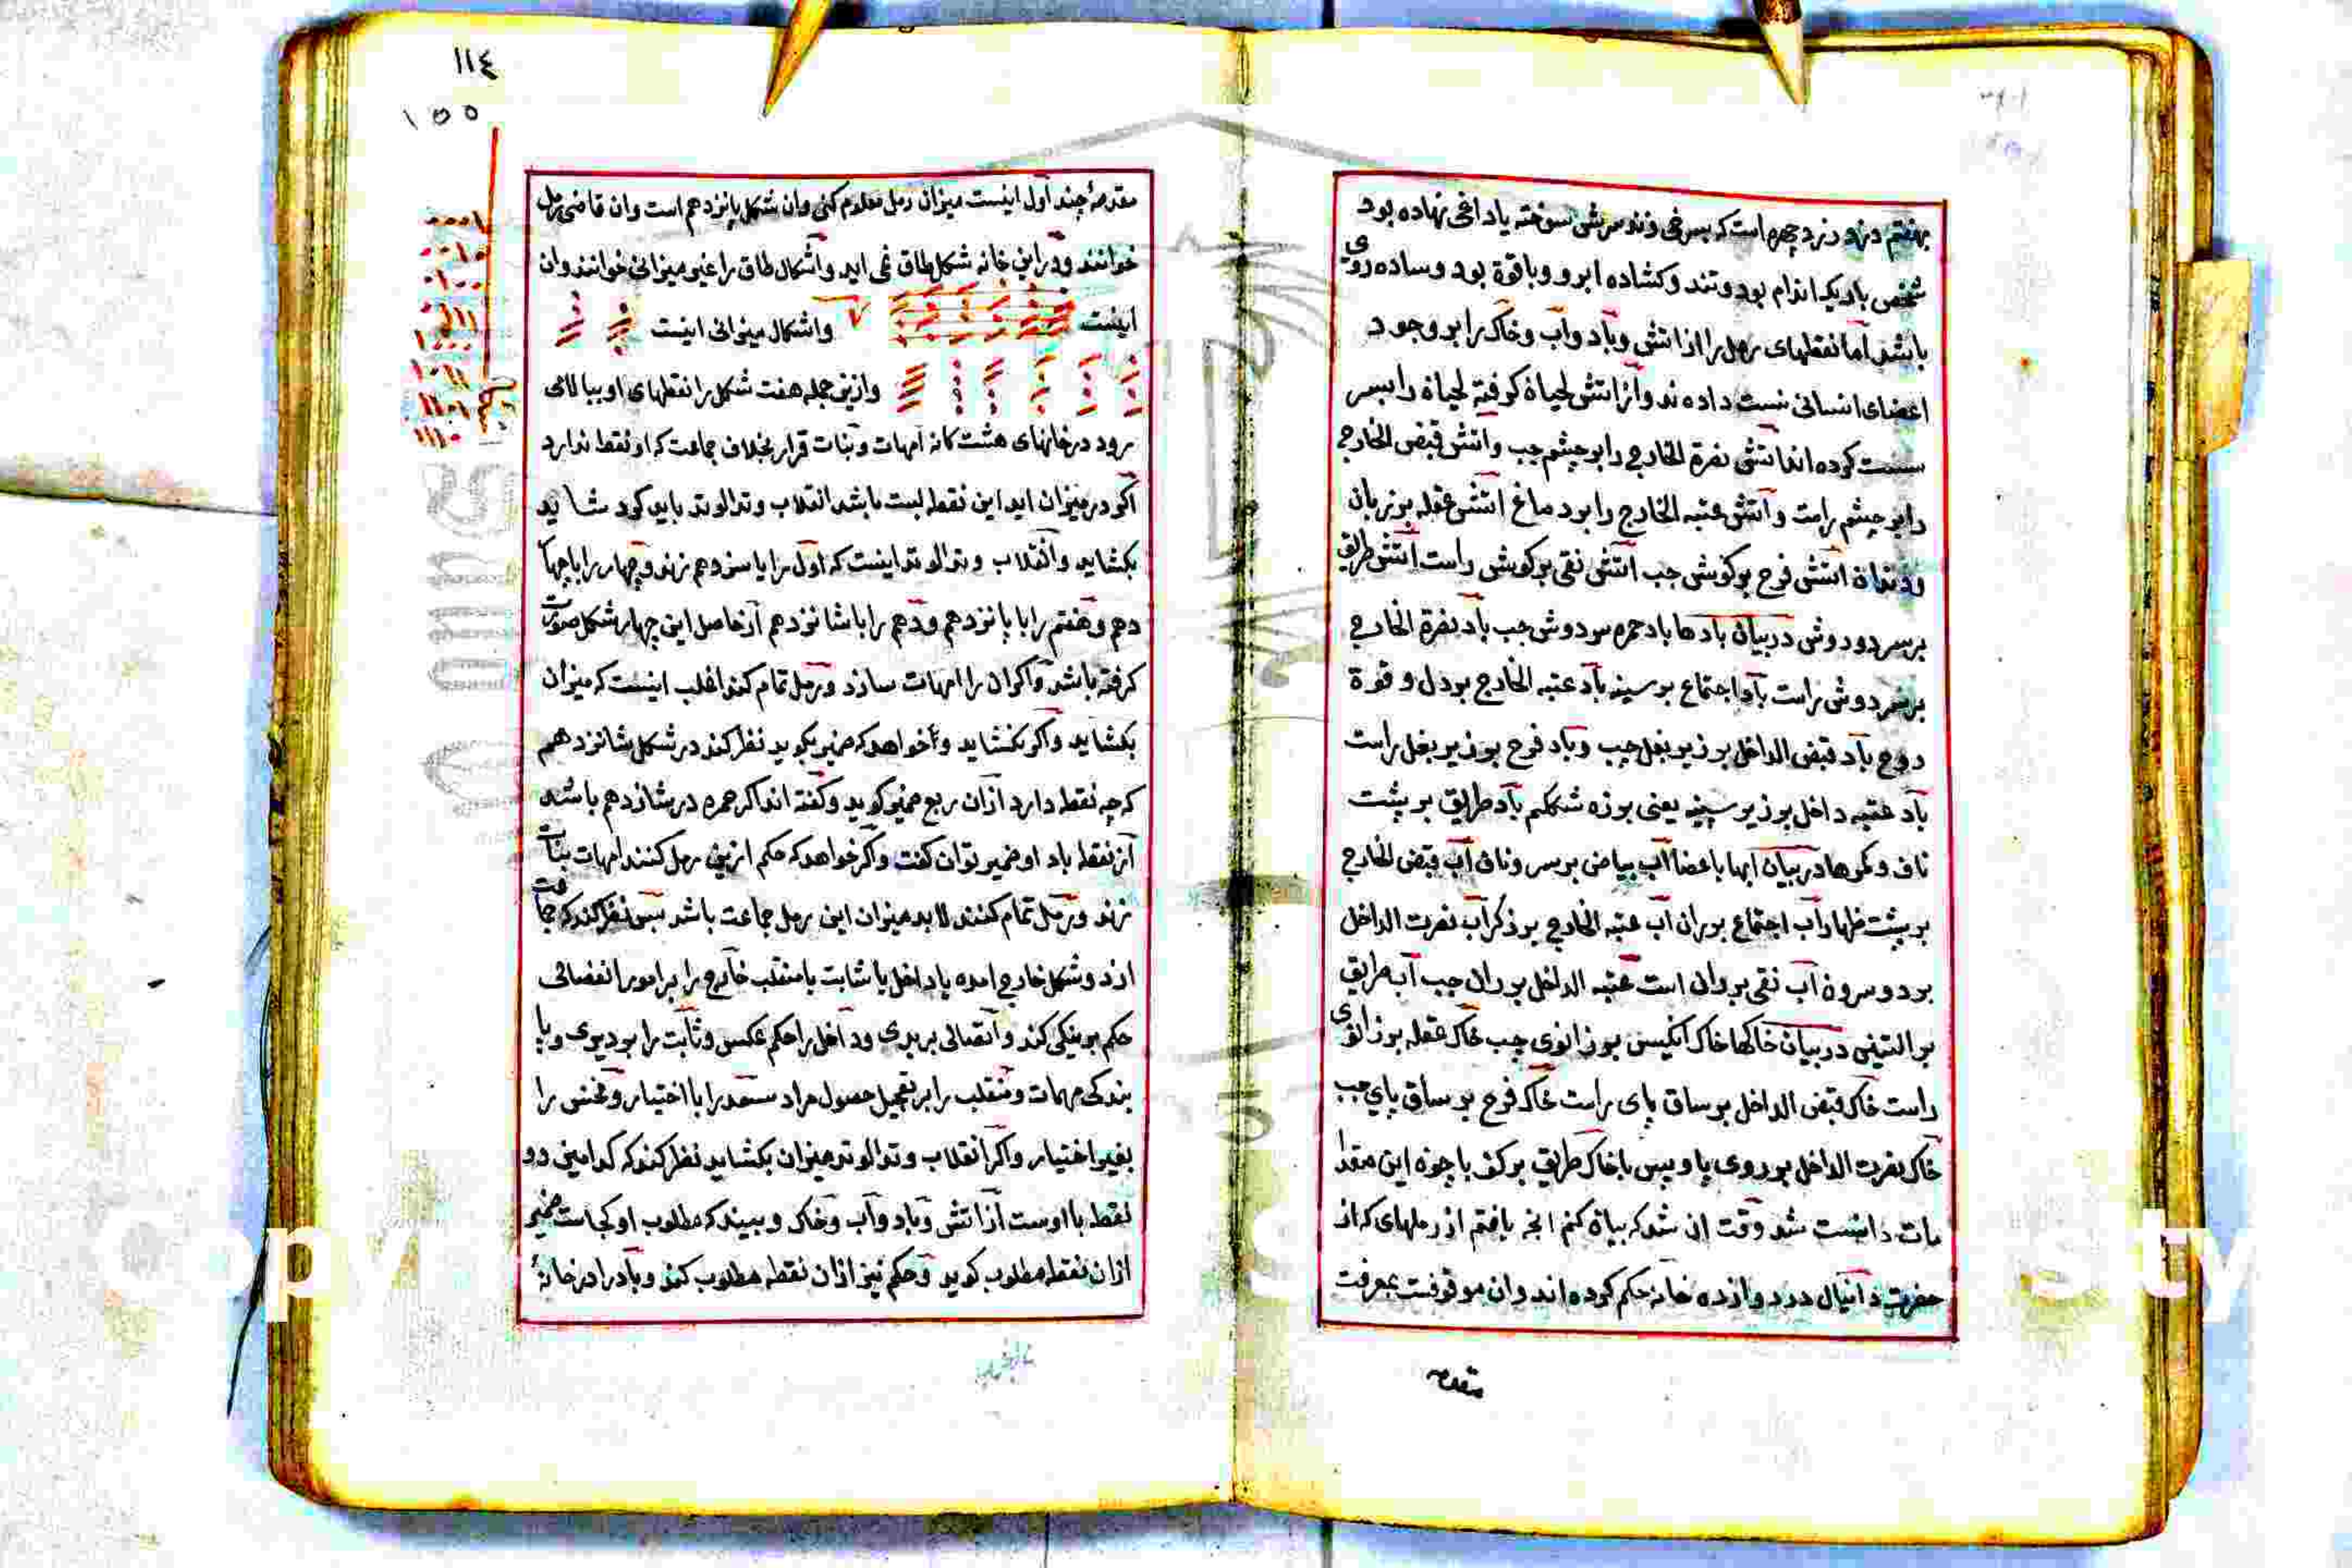 شخص باریک اندام بود و تند و کشاده ابرو و با قوة بود و ساده روی
باشد اما نقطهای رمل را از اتش و باد و آب و خاک را بر وجود
اعضای انسانی نسبت داده ند و از اتش لحیان کوفته لحیان را بسر
نسبت کرده اند اتش نصرة الخارج را بر چشم چپ و اتش قبض الخارج
را بر چشم راست و آتش عتبه الخارج را بر دماغ اتش عقله بر زبان
و دندان اتش فرح بر کوش چپ اتش نقی بر کوش راست اتش طریق
بر سر دو دوش در بیان بادها باد حمره سر دوش چپ باد نصرة الخارج
بر سر دوش راست باد اجتماع بر سینه باد عتبه الخارج بر دل و قوة
روح باد قبض الداخل بر زیر بغل چپ و باد فرح بر زیر بغل راست
باد عتبه داخل بر زیر سینه یعنی بر زه شکم باد طریق بر پشت
ناف و کمرها در بیان ابها با عضا آب بیاض بر سر و ناف آب قبض الخارج
بر پشت ظهار آب اجتماع بر ران آب عتبه الخارج بر ذکر آب نصرت الداخل
بر دو سرون آب نقی بر ران است عتبه الداخل بر ران چپ آب طریق
بر التینی در بیان خاکها خاک انکیس بر زانوی چپ خاک عقله بر زانوی
راست خاک قبض الداخل بر ساق پای راست خاک فرح بر ساق پای چپ
خاک نصرت الداخل بر روی پا و پس با خاک طریق بر کف پا چون این مقد
مات دانست شد وقت ان شد که بیان کنم انچه یافتم از رملهای که از
حضرت دانیال در دوازده خانه حکم کرده اند وان موقوفست بمعرفت
مقدمه
١١٤
١٥٥
مقدمهٔ چند اول اینست میزان رمل معلوم کنی وان شکل پانزدهم است وان قاضی رمل
خوانند و در این خانه شکل طاق نمی اید و اشکال طاق را غیر میزانی خوانند وان
اینست واشکال میزانی اینست
وازین جمله هفت شکل را نقطهای او ببالائی
رود در خانهای هشت کانه امهات و بنات قرار بخلاف جماعت که او نقط ندارد
اکر در میزان اید این نقطه لبت باشد انقلاب وتد الوتد باید کرد شاید
بکشاید و انقلاب وتد الوتد اینست که اول را با سزدهم زند و چهار را با چها
دهم و هفتم را با پانزدهم و دهم را با شانزدهم از حاصل این چهار شکل صورت
کرفته باشد و اکران را امهات سازد و رمل تمام کند اغلب اینست که میزان
بکشاید و اکر نکشاید و خواهد که ضمیر بکوید نظر کند در شکل شانزدهم
که چه نقطه دارد از ان ربع ضمیر کوید و کفته اند اکر حمره در شازدهم باشد
از نقطه باد او ضمیر توان کفت و اکر خواهد که حکم ازین رمل کنند امهات بنات
زند و رمل تمام کنند لابد میزان این رمل جماعت باشد پس نظر کند که جماعت
از دو شکل خارج امده یا داخل یا ثابت یا منقلب خارج را بر امور انفصالی
حکم بر نیکی کند و اتصالی بر بدی و داخل را حکم عکس و ثابت را بر دیری و پا
بندکی مهمات و منقلب را بر تعجیل حصول مراد سعد را با اختیار و نحس را
بغیر اختیار و اکر انقلاب وتد الوتد میزان بکشاید نظر کند که کدامین دو
نقطه با اوست از اتش و باد و آب و خاک و ببیند که مطلوب او کجاست ضمیر
از ان نقطه مطلوب کوید و حکم نیز از ان نقطه مطلوب کند و باد را در خانهٔ